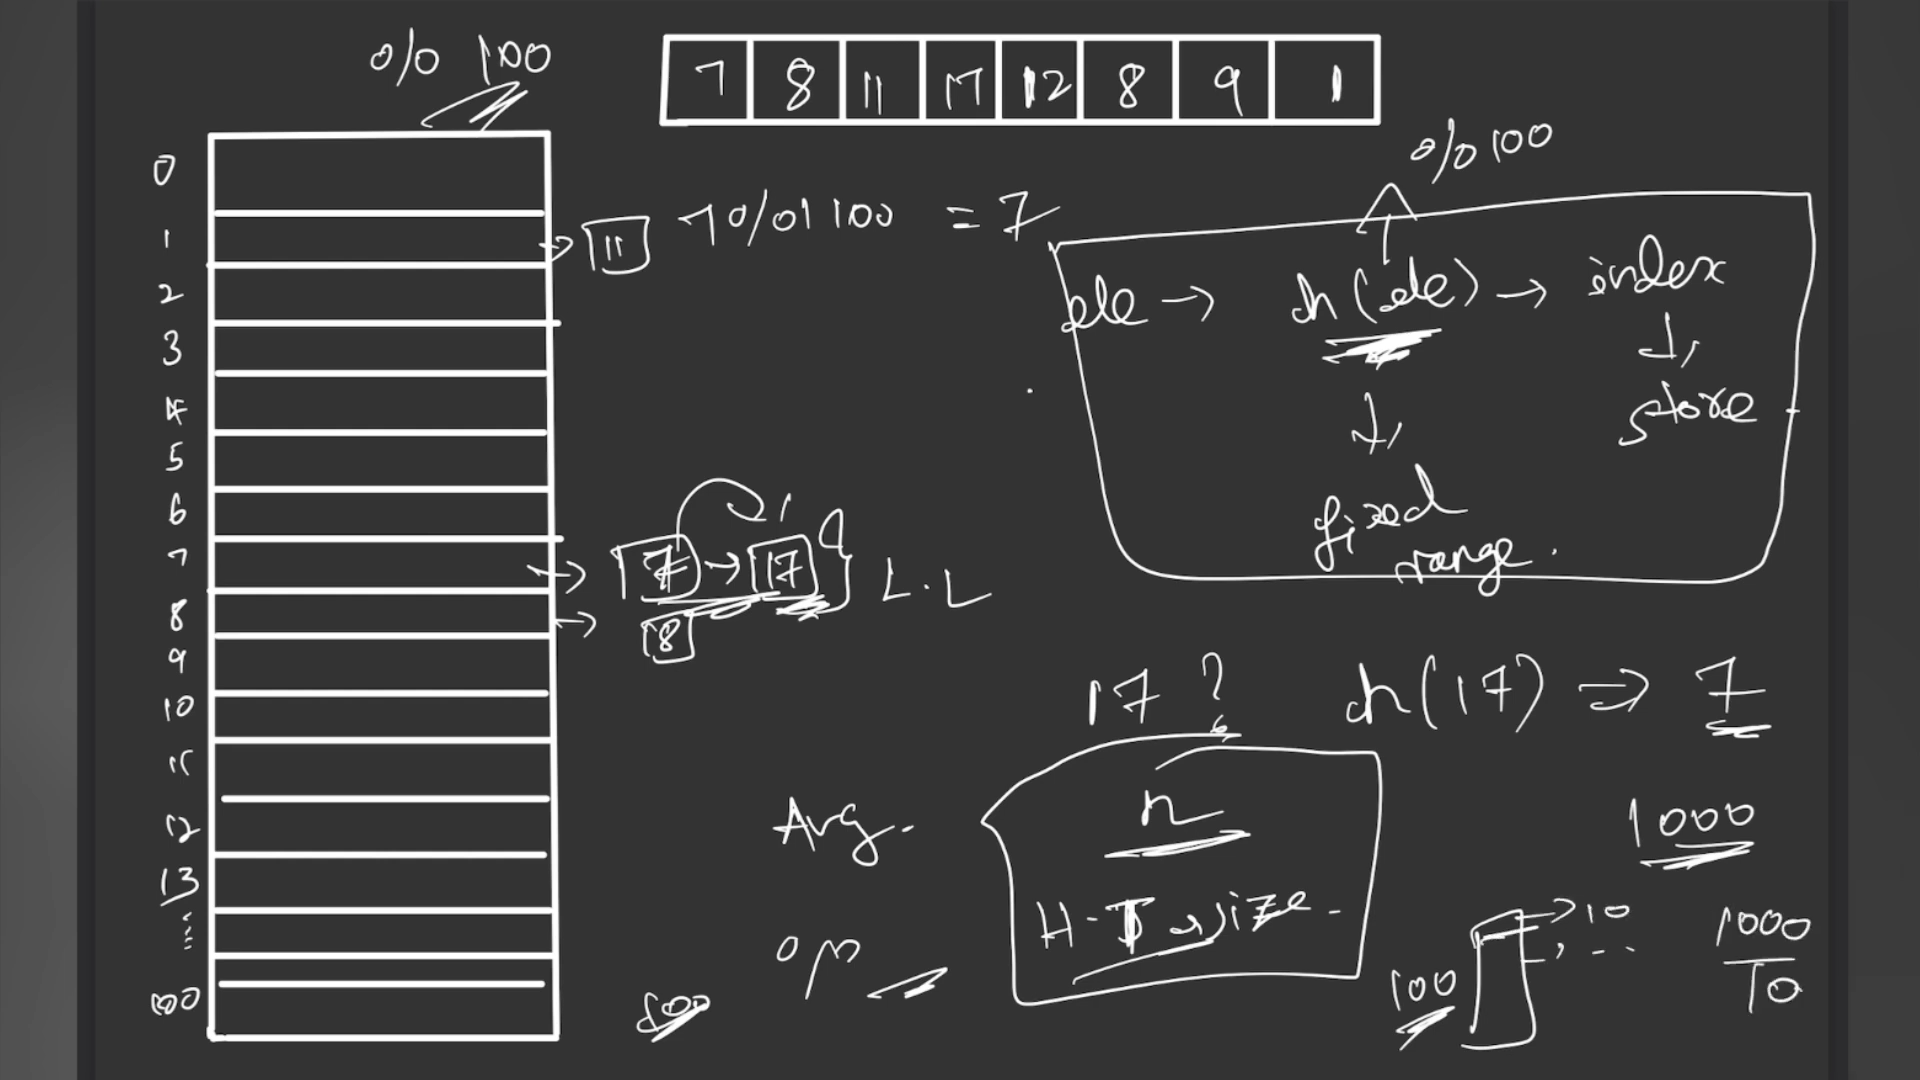 % 100
7 8 11 17 12 8 9 1
% 100
0
1
2
3
4
5
6
7
8
9
10
11
12
13
100
11
7 % 100 = 7
ele → h(ele) → index
↓
store
↓
fixed
range.
7 → 17
L.L
8
17 ?
h(17) ⇒ 7
Avg.
n
H-T size
1000
→ 10
100
1000
10